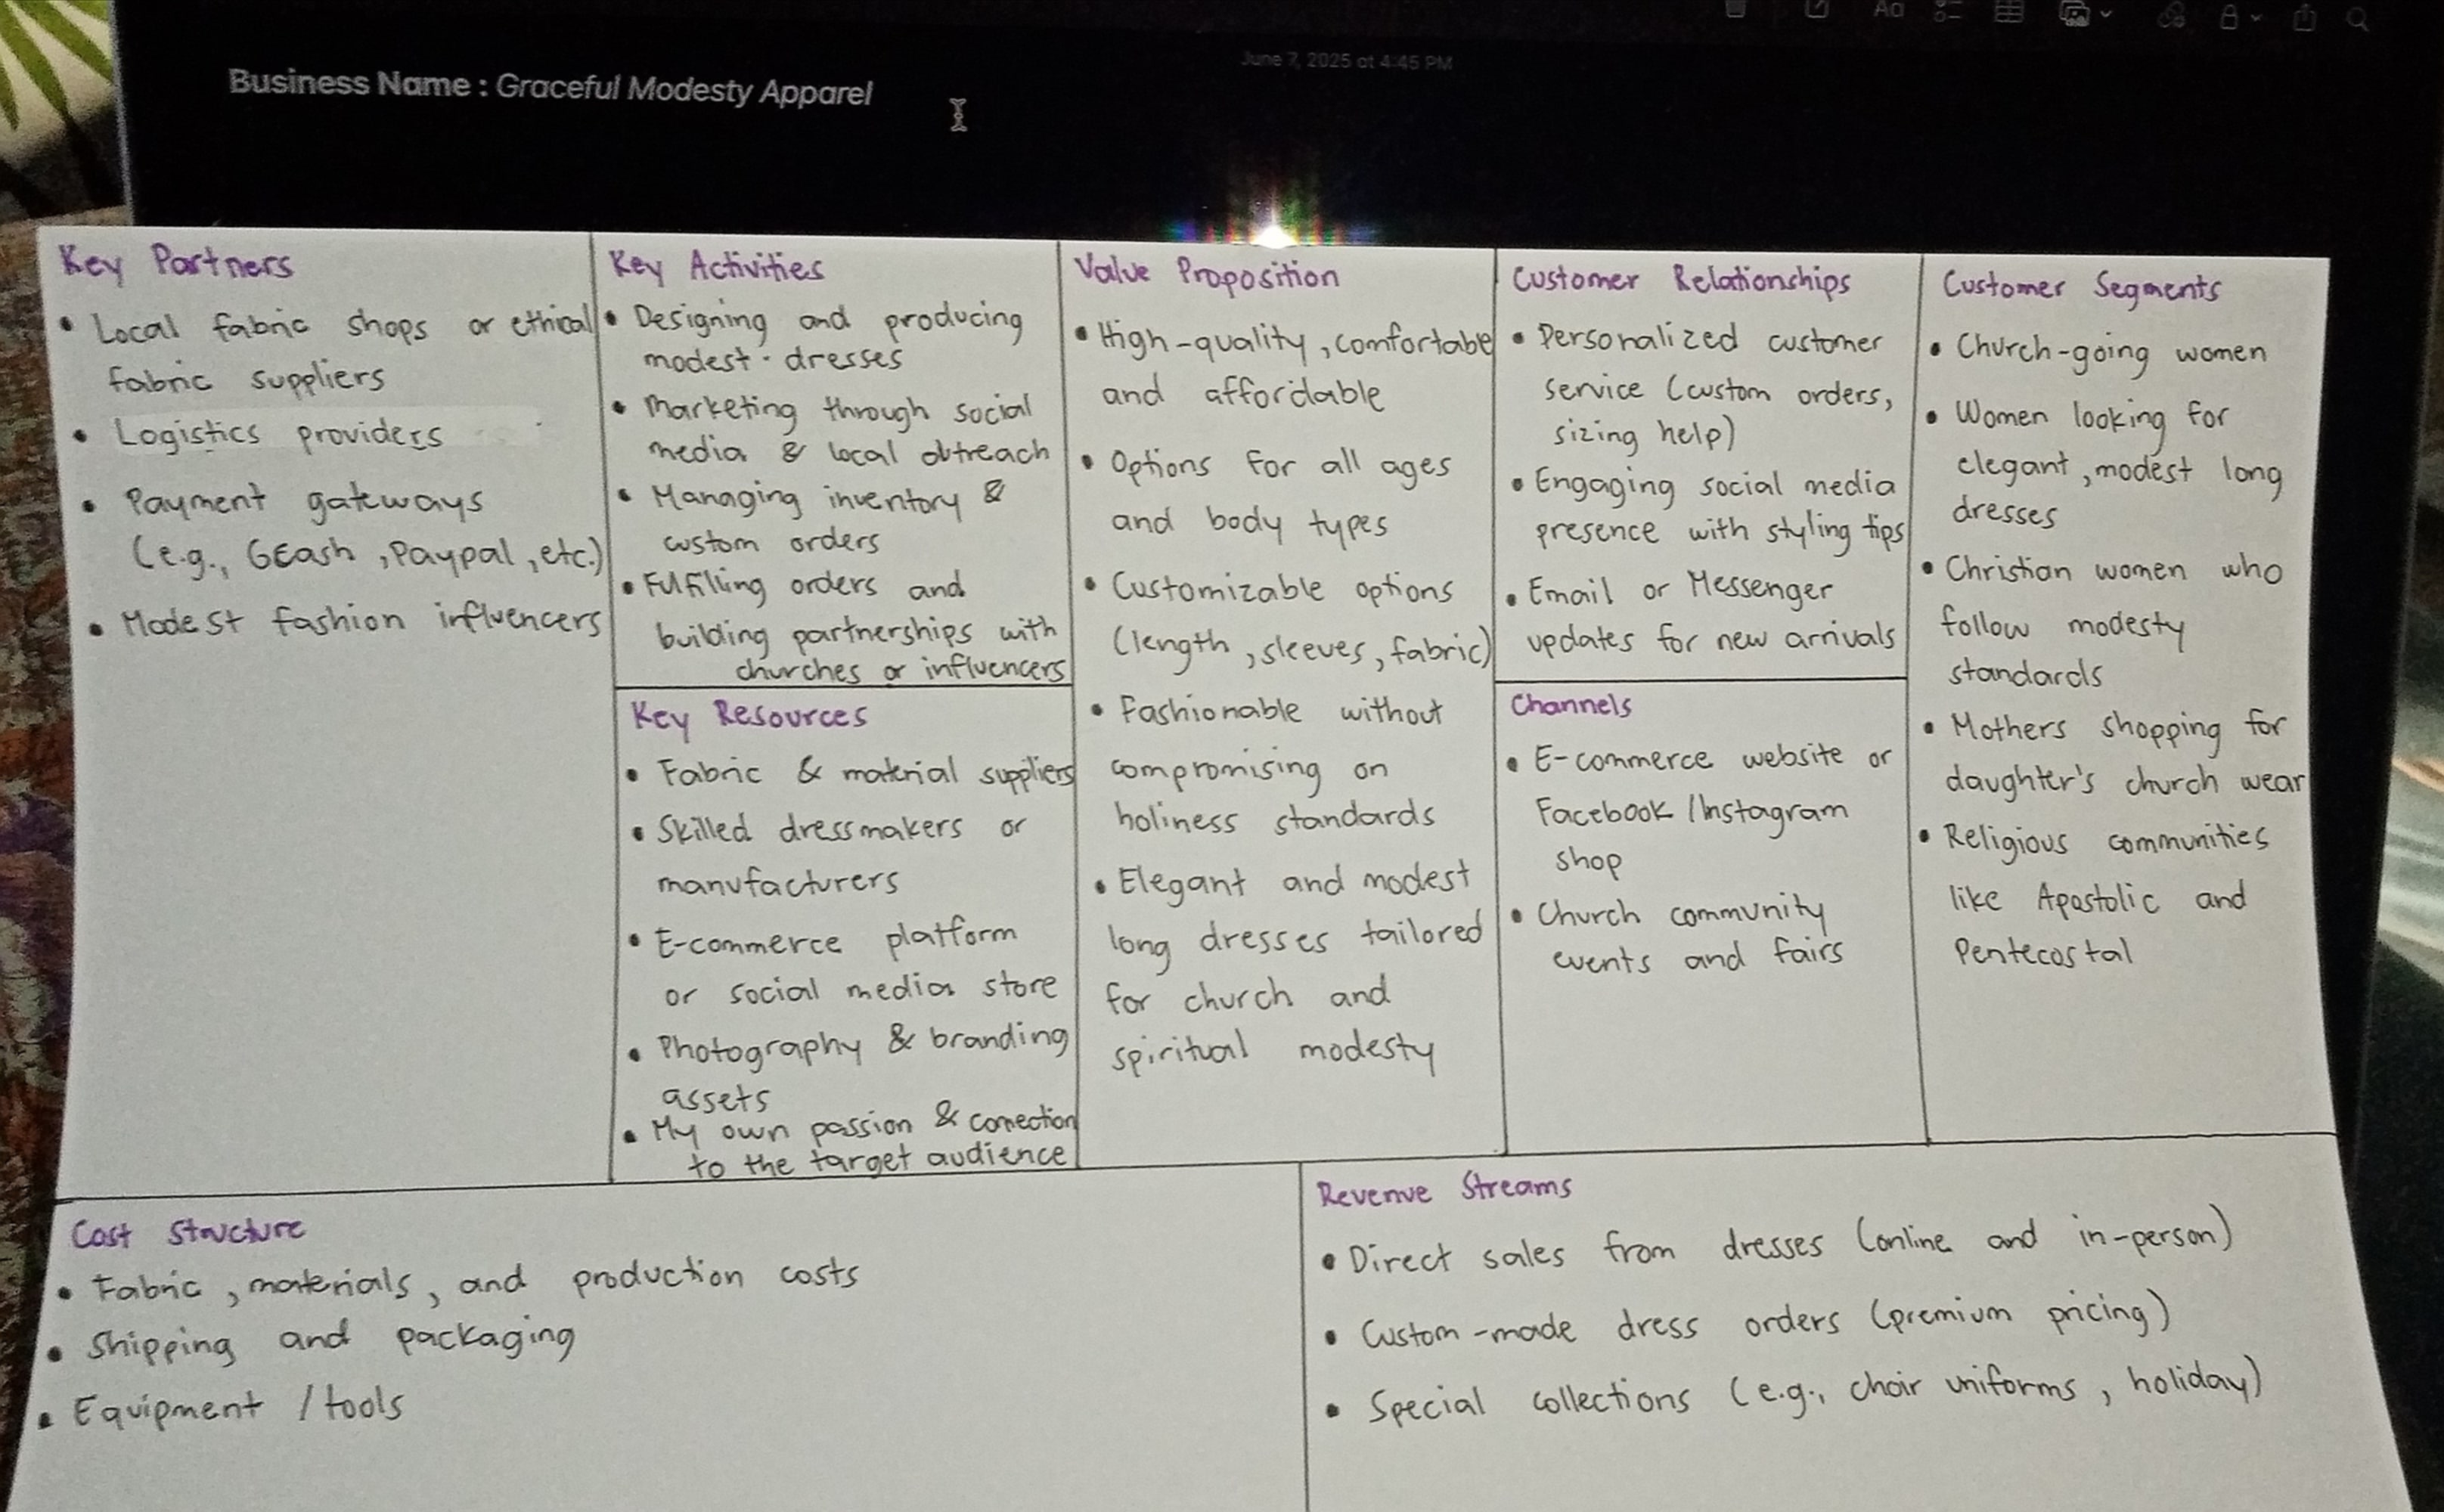 June 7, 2025 at 4:45 PM
Business Name : Graceful Modesty Apparel
Key Partners
• Local fabric shops or ethical
fabric suppliers
• Logistics providers
• Payment gateways
(e.g., GCash , Paypal , etc.)
• Modest fashion influencers
Key Activities
• Designing and producing
modest dresses
• Marketing through social
media & local outreach
• Managing inventory &
custom orders
• Fulfilling orders and
building partnerships with
churches or influencers
Key Resources
• Fabric & material suppliers
• Skilled dressmakers or
manufacturers
• E-commerce platform
or social media store
• Photography & branding
assets
• My own passion & connection
to the target audience
Value Proposition
• High-quality , comfortable
and affordable
• Options for all ages
and body types
• Customizable options
(length , sleeves , fabric)
• Fashionable without
compromising on
holiness standards
• Elegant and modest
long dresses tailored
for church and
spiritual modesty
Customer Relationships
• Personalized customer
service (custom orders,
sizing help)
• Engaging social media
presence with styling tips
• Email or Messenger
updates for new arrivals
Channels
• E-commerce website or
Facebook / Instagram
shop
• Church community
events and fairs
Customer Segments
• Church-going women
• Women looking for
elegant , modest long
dresses
• Christian women who
follow modesty
standards
• Mothers shopping for
daughter's church wear
• Religious communities
like Apostolic and
Pentecostal
Cost Structure
• Fabric , materials , and production costs
• Shipping and packaging
• Equipment / tools
Revenue Streams
• Direct sales from dresses (online and in-person)
• Custom-made dress orders (premium pricing)
• Special collections (e.g., choir uniforms , holiday)